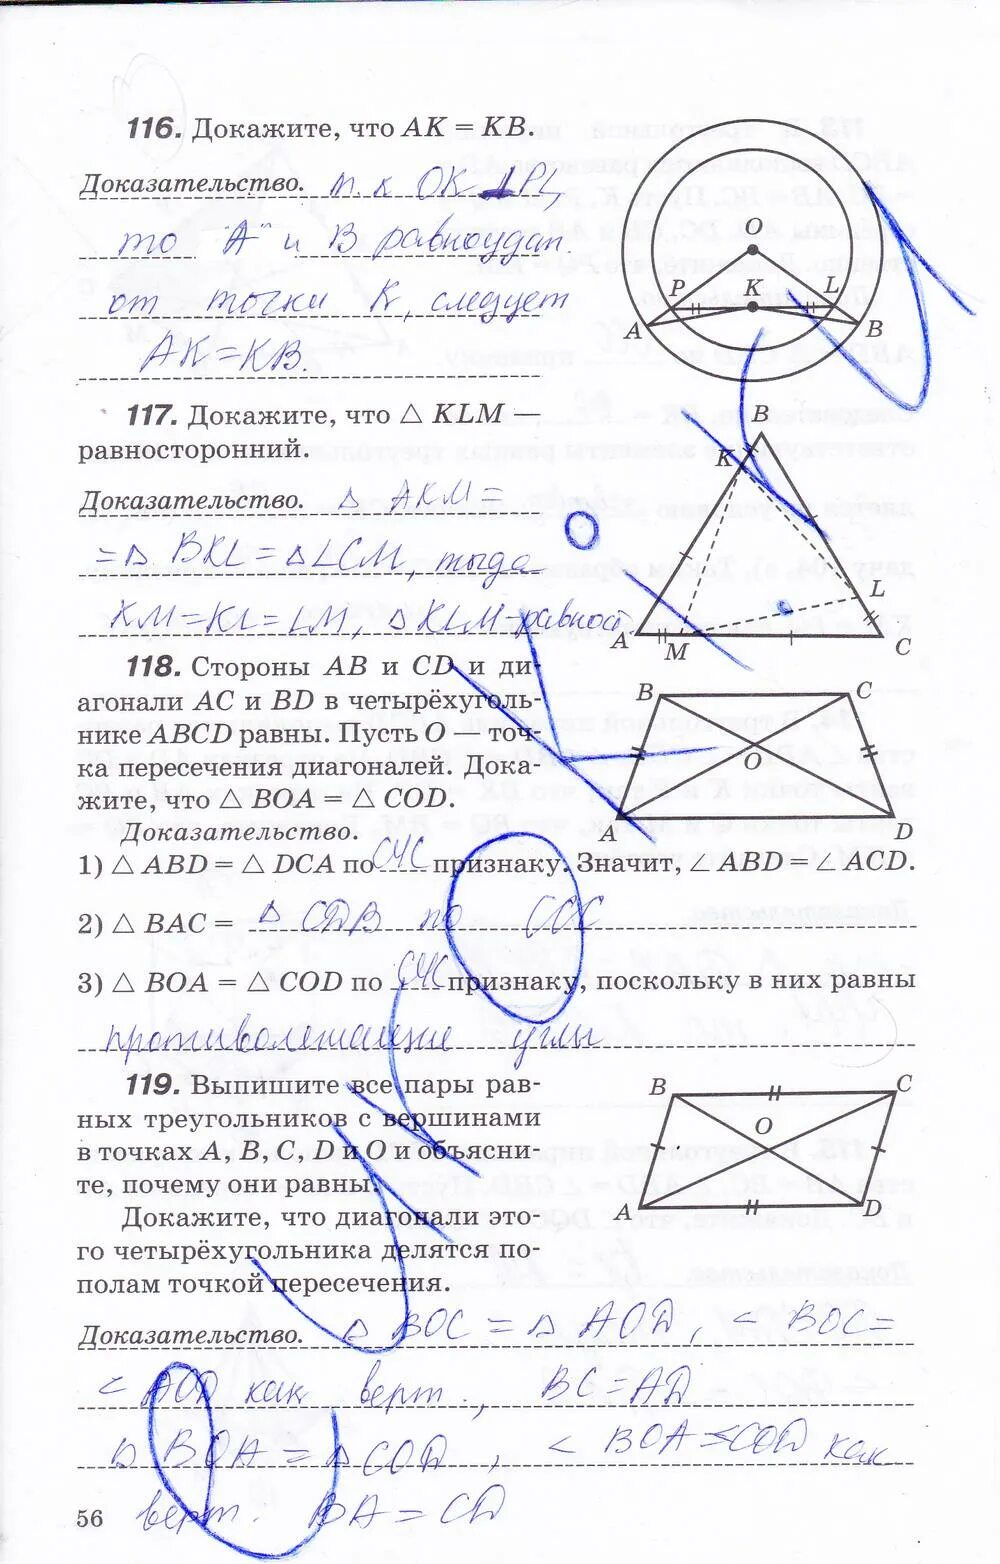 116. Докажите, что AK = KB.
Доказательство. т. к OK ⊥ PL,
то "A" и B равноудал
от точки K, следует
AK = KB.
O
P K L
A B
117. Докажите, что △ KLM —
равносторонний.
Доказательство. △ AKM =
= △ BKL = △ LCM, тогда
KM = KL = LM, △ KLM равност
B
K
L
A M C
118. Стороны AB и CD и ди-
агонали AC и BD в четырёхуголь-
нике ABCD равны. Пусть O — точ-
ка пересечения диагоналей. Дока-
жите, что △ BOA = △ COD.
B C
O
A D
Доказательство.
1) △ ABD = △ DCA по ССС признаку. Значит, ∠ ABD = ∠ ACD.
2) △ BAC = △ CDB по ССС
3) △ BOA = △ COD по СУС признаку, поскольку в них равны
противолежащие углы
119. Выпишите все пары рав-
ных треугольников с вершинами
в точках A, B, C, D и O и объясни-
те, почему они равны.
Докажите, что диагонали это-
го четырёхугольника делятся по-
полам точкой пересечения.
B C
O
A D
Доказательство. △ BOC = △ AOD, < BOC =
< AOD как верт., BC = AD
△ BOA = △ COD, < BOA = COD как
верт. BA = CD
56